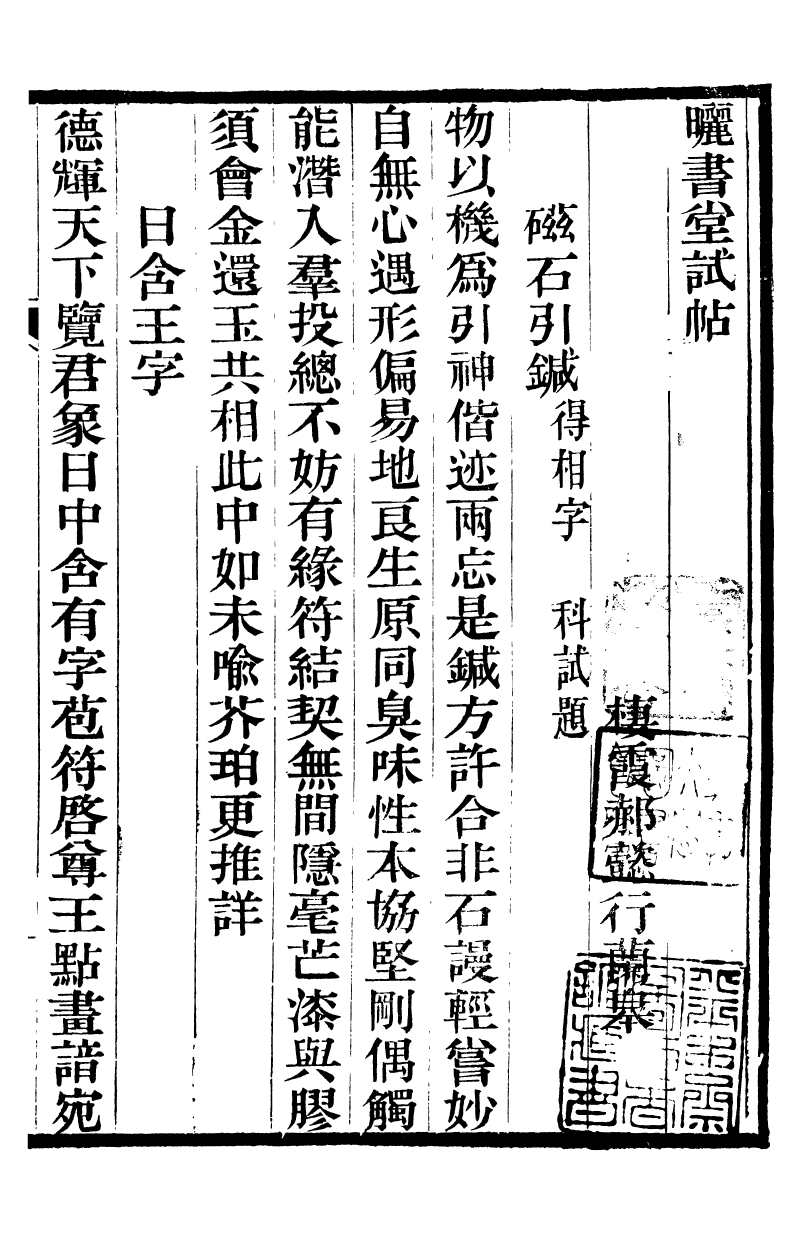 曬書堂試帖
棲霞郝懿行蘭皋
磁石引鍼得相字 科試題
物以機爲引神偕迹兩忘是鍼方許合非石謾輕嘗妙
自無心遇形偏易地良生原同臭味性本協堅剛偶觸
能潛入羣投總不妨有緣符結契無間隱毫芒漆與膠
須會金還玉共相此中如未喻芥珀更推詳
日含王字
德輝天下覽君象日中含有字苞符啓尊王點畫諳宛